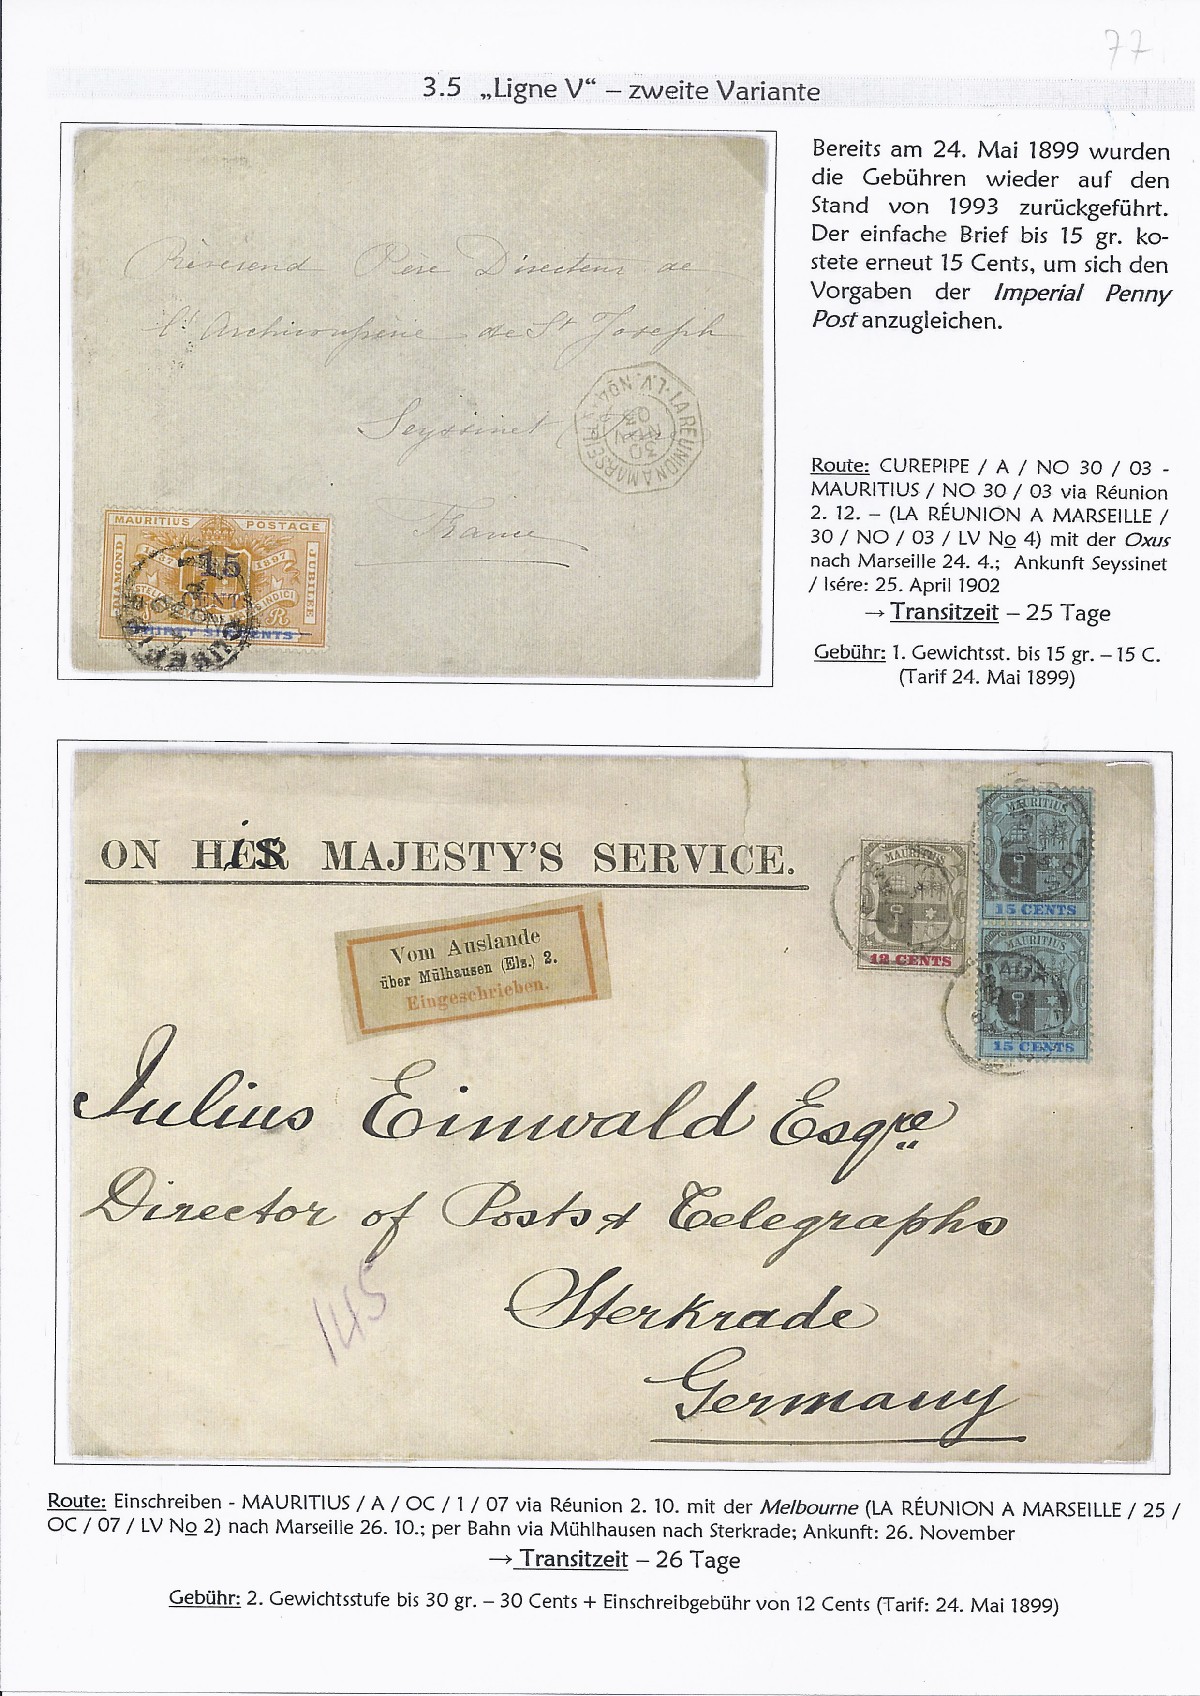 77
3.5 „Ligne V“ – zweite Variante
Révérend Père Directeur de
l'Archiconfrérie de St Joseph
Seyssinet
France
LA REUNION A MARSEILLE L.V. No 4
30
NOV
03
MAURITIUS POSTAGE
DIAMOND
JUBILEE
1837
1897
15
CENTS
THIRTY SIX CENTS
CUREPIPE
Bereits am 24. Mai 1899 wurden
die Gebühren wieder auf den
Stand von 1993 zurückgeführt.
Der einfache Brief bis 15 gr. ko-
stete erneut 15 Cents, um sich den
Vorgaben der Imperial Penny
Post anzugleichen.
Route: CUREPIPE / A / NO 30 / 03 -
MAURITIUS / NO 30 / 03 via Réunion
2. 12. – (LA RÉUNION A MARSEILLE /
30 / NO / 03 / LV No 4) mit der Oxus
nach Marseille 24. 4.; Ankunft Seyssinet
/ Isére: 25. April 1902
→ Transitzeit – 25 Tage
Gebühr: 1. Gewichtsst. bis 15 gr. – 15 C.
(Tarif 24. Mai 1899)
ON HIS MAJESTY'S SERVICE.
MAURITIUS
12 CENTS
MAURITIUS
15 CENTS
MAURITIUS
15 CENTS
Vom Auslande
über Mülhausen (Els.) 2.
Eingeschrieben.
Julius Einwald Esqre
Director of Posts & Telegraphs
Sterkrade
Germany
145
Route: Einschreiben - MAURITIUS / A / OC / 1 / 07 via Réunion 2. 10. mit der Melbourne (LA RÉUNION A MARSEILLE / 25 /
OC / 07 / LV No 2) nach Marseille 26. 10.; per Bahn via Mühlhausen nach Sterkrade; Ankunft: 26. November
→ Transitzeit – 26 Tage
Gebühr: 2. Gewichtsstufe bis 30 gr. – 30 Cents + Einschreibgebühr von 12 Cents (Tarif: 24. Mai 1899)